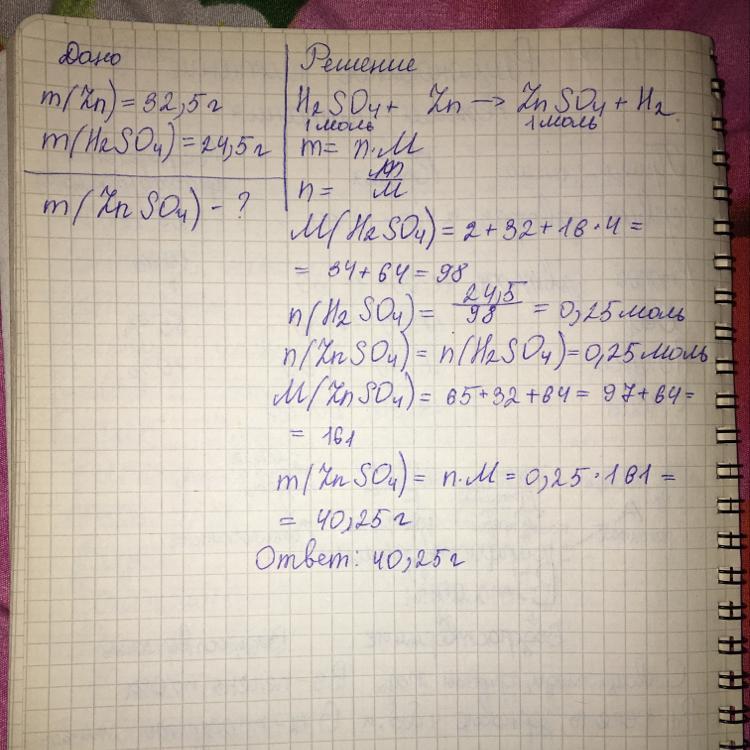 Дано
m(Zn) = 32,5 г
m(H2SO4) = 24,5 г
m(ZnSO4) - ?
Решение
H2SO4 + Zn → ZnSO4 + H2
1 моль 1 моль
m = n · M
n = m/M
M(H2SO4) = 2 + 32 + 16 · 4 =
= 34 + 64 = 98
n(H2SO4) = 24,5/98 = 0,25 моль
n(ZnSO4) = n(H2SO4) = 0,25 моль
M(ZnSO4) = 65 + 32 + 64 = 97 + 64 =
= 161
m(ZnSO4) = n · M = 0,25 · 161 =
= 40,25 г
Ответ: 40,25 г